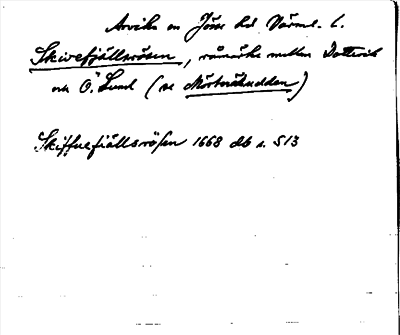 Arvika sn Jösse hd Värml. l.
Skivefjällsrösen, råmärke mellan Dottevik
och Ö. Lund (se Mörtnäsudden)
Skiffuefiällsrösen 1668 db s. 513